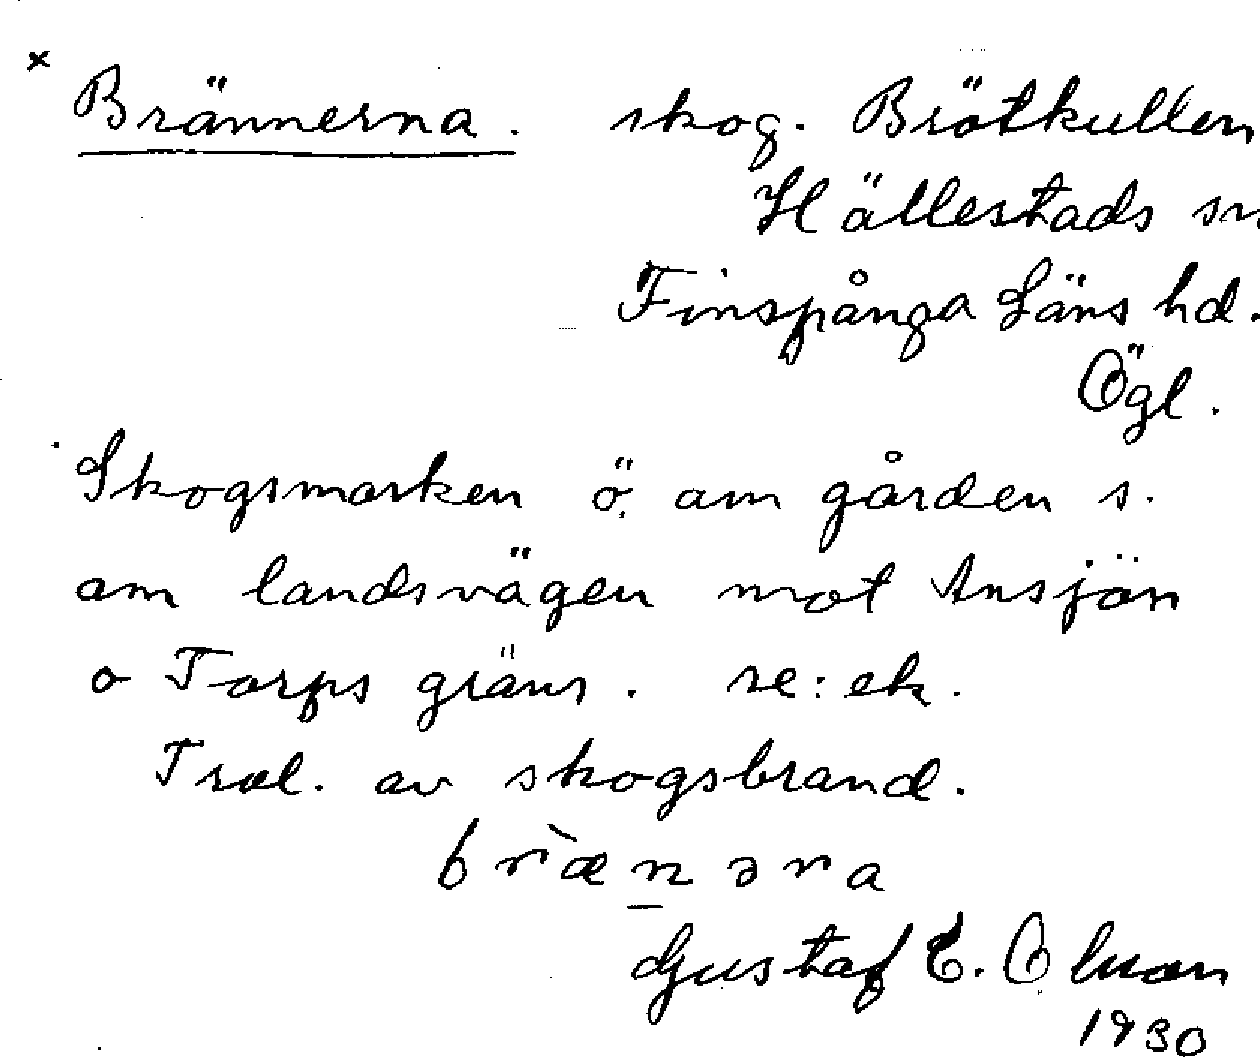 × Brännerna. skog. Brötkullen
Hällestads sn
Finspånga Läns hd.
Ögl.
Skogsmarken ö. om gården s.
om landsvägen mot Ansjön
o Torps gräns. re: ek.
Trol. av skogsbrand.
bræ̀n̲əra
Gustaf E. Olsson
1930